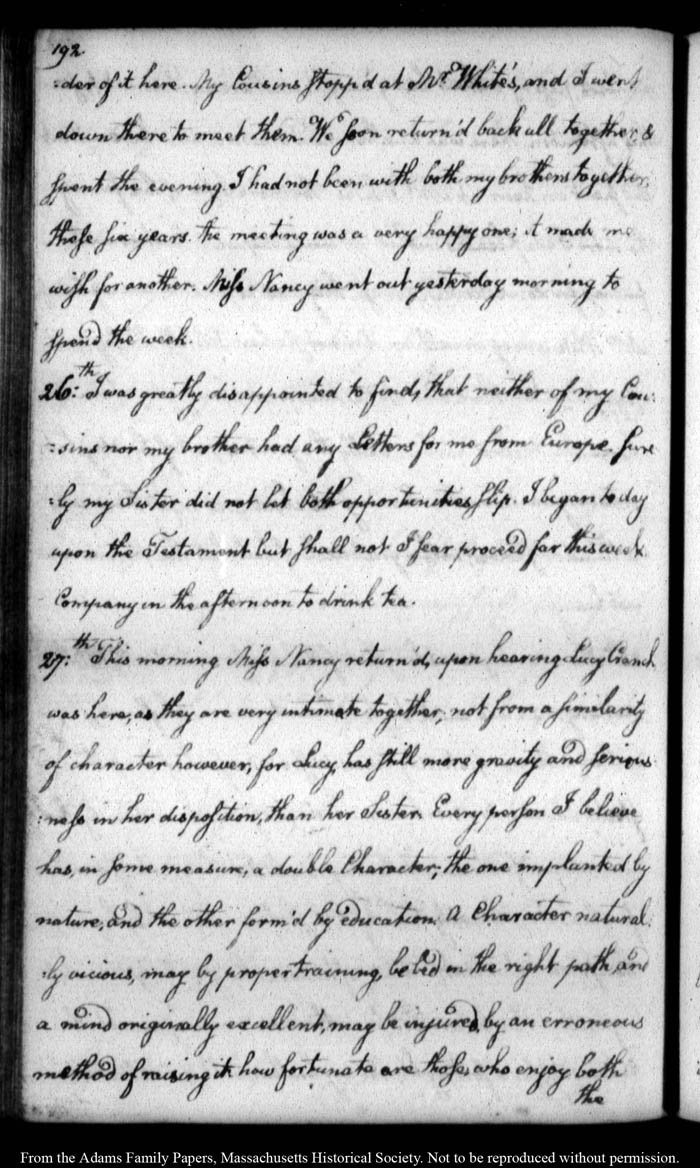 192
:der of it here. My Cousins stopp'd at Mr. White's, and I went
down there to meet them. We soon return'd back all together, &
spent the evening. I had not been with both my brothers together,
these six years. the meeting was a very happy one; it made me
wish for another. Miss Nancy went out yesterday morning to
spend the week.
26:th I was greatly disappointed to find, that neither of my Cou:
:sins nor my brother had any Letters for me from Europe. Sure
:ly my Sister did not let both opportunities slip. I began to day
upon the Testament but shall not I fear proceed far this week
Company in the afternoon to drink tea.
27:th This morning Miss Nancy return'd, upon hearing Lucy Cranch
was here, as they are very intimate together; not from a similarity
of character however, for Lucy, has still more gravity and serious
:ness in her disposition, than her Sister. Every person I believe
has, in some measure, a double Character; the one implanted by
nature, and the other form'd by education. A Character natural:
:ly vicious, may by proper training, be led in the right path, and
a mind originally excellent, may be injured, by an erroneous
method of raising it. how fortunate are those, who enjoy both
the
From the Adams Family Papers, Massachusetts Historical Society. Not to be reproduced without permission.